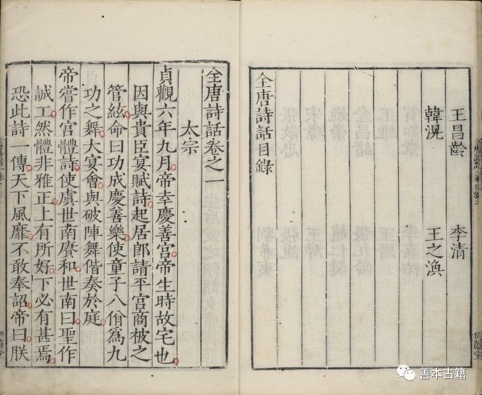 王昌齡　李清
韓滉　王之渙
全唐詩話目錄
全唐詩話卷之一
太宗
貞觀六年九月帝幸慶善宮帝生時故宅也
因與貴臣宴賦詩起居郎請平宮商被之
管絃命曰功成慶善樂使童子八佾爲九
功之舞大宴會與破陣舞偕奏於庭
帝嘗作宮體詩使虞世南賡和世南曰聖作
誠工然體非雅正上有所好下必有甚焉
恐此詩一傳天下風靡不敢奉詔帝曰朕
善本古籍